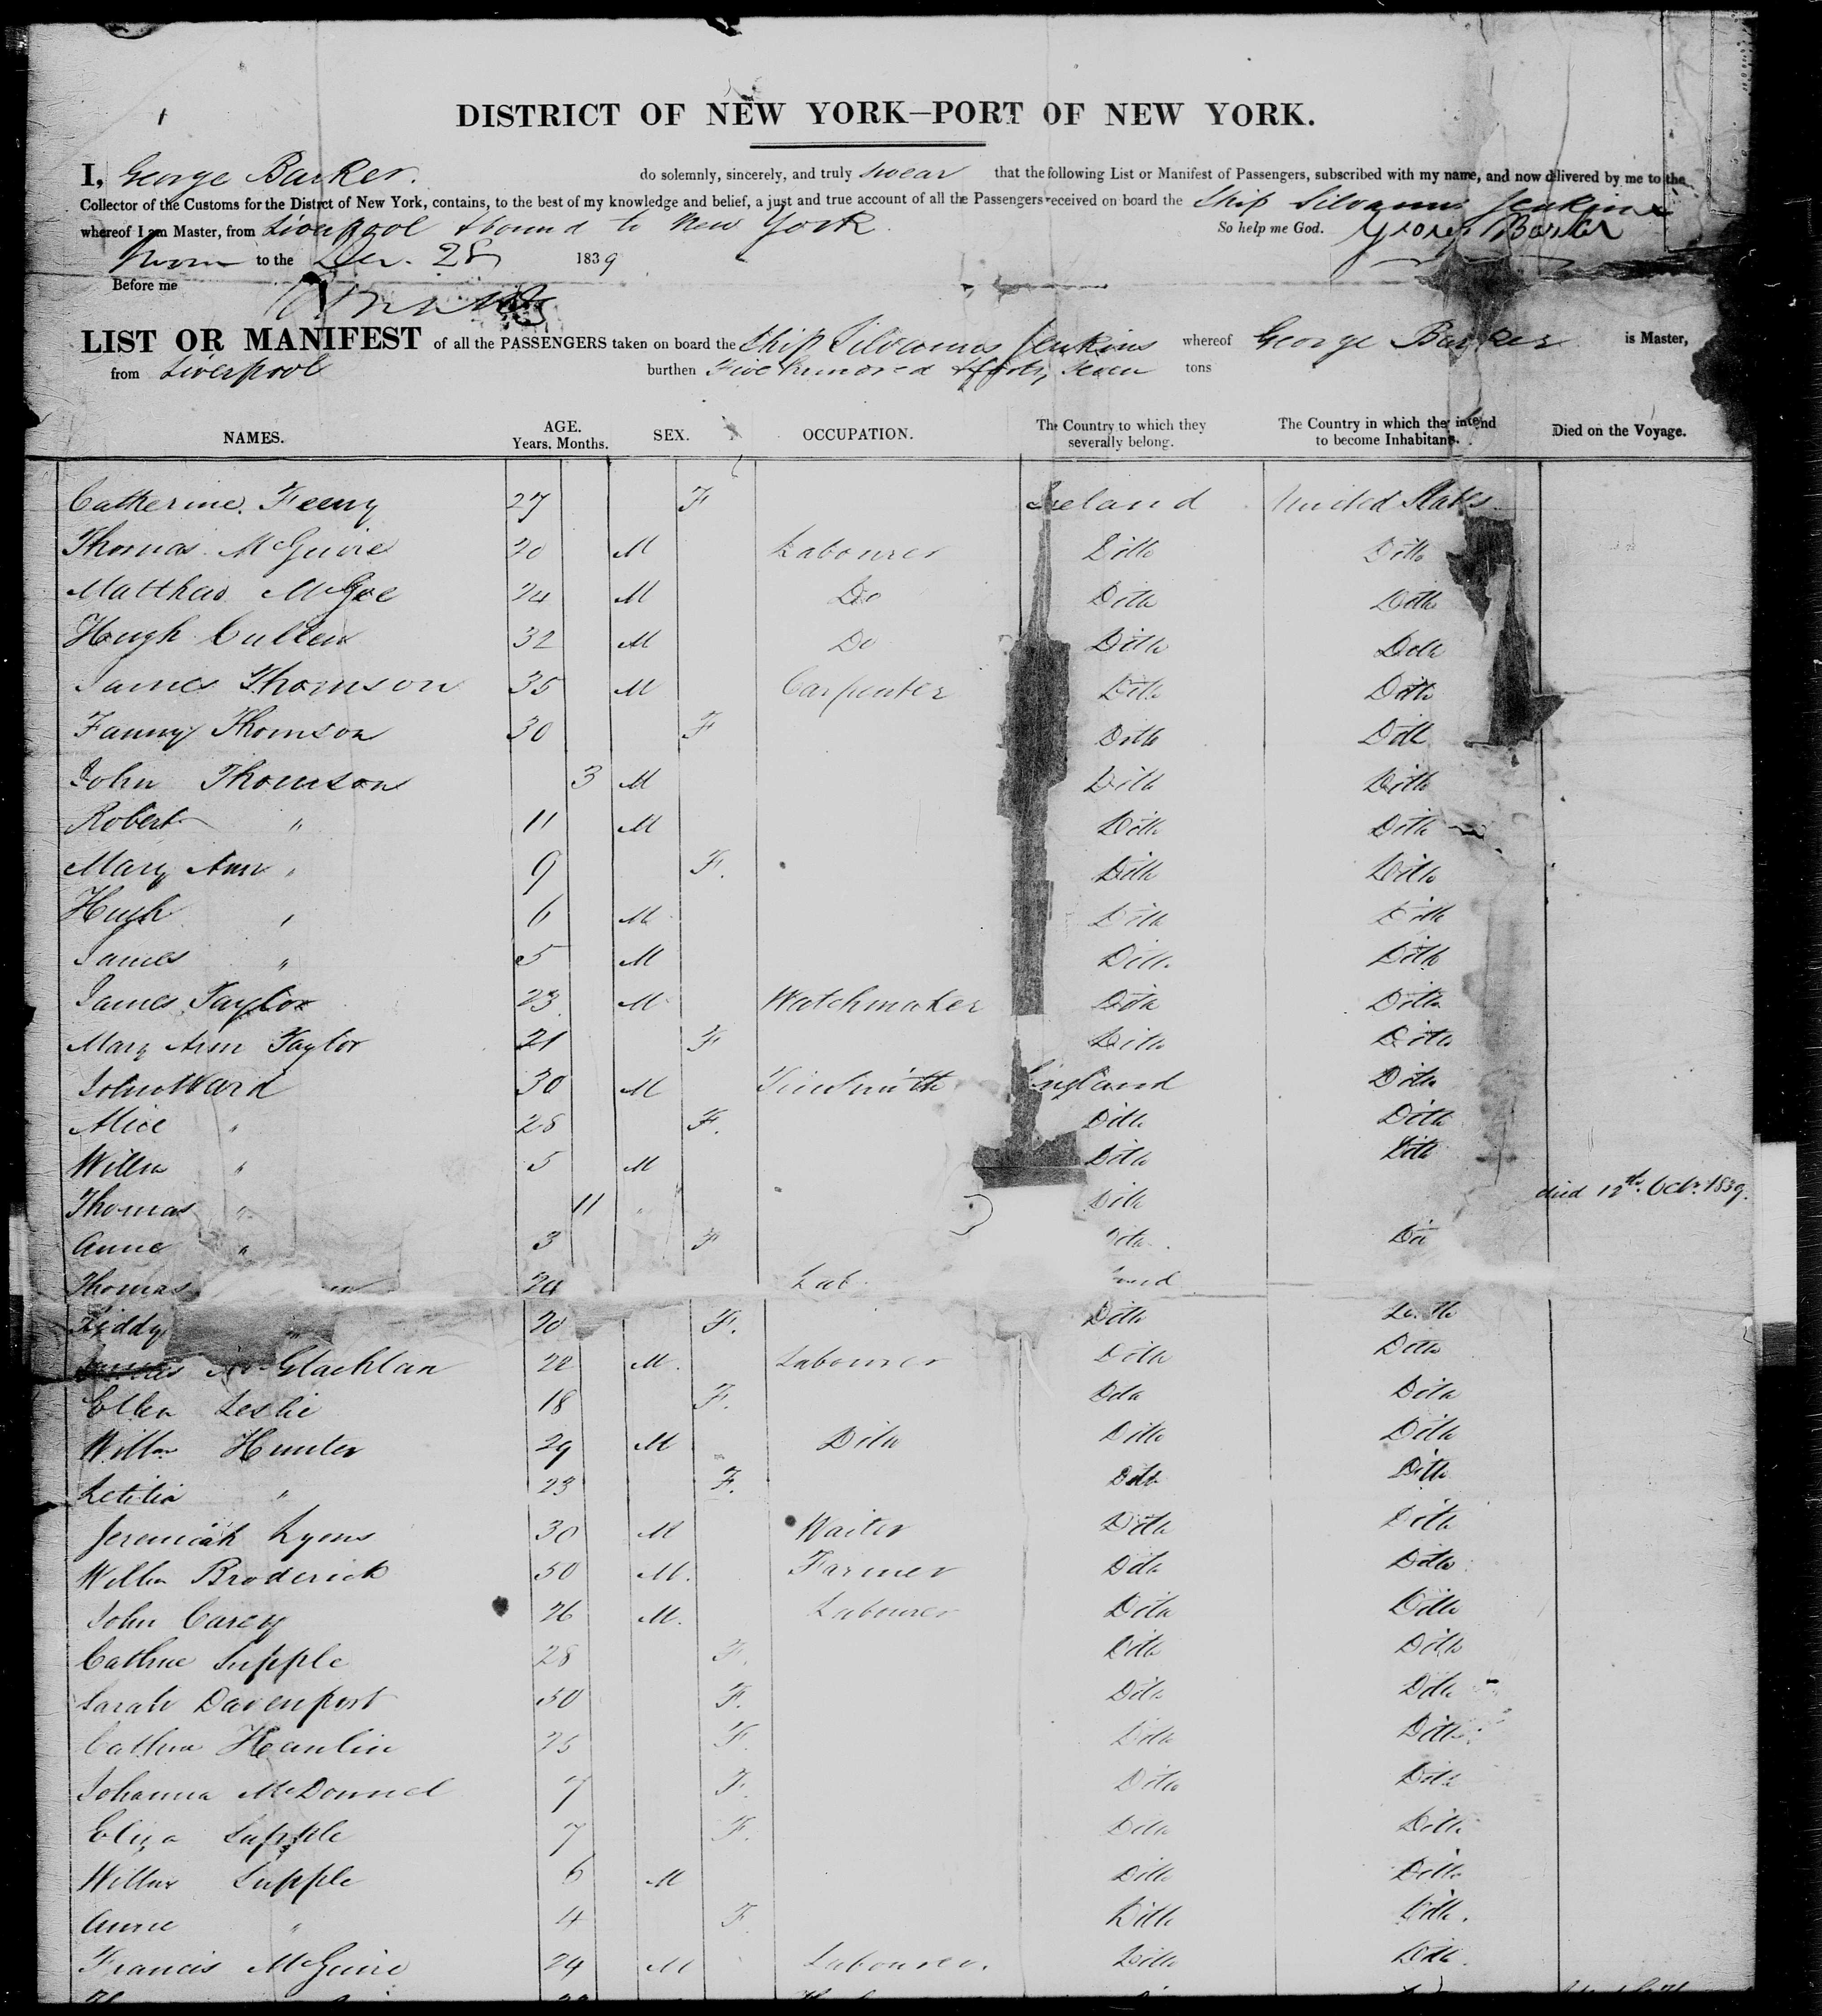 DISTRICT OF NEW YORK—PORT OF NEW YORK.
I, George Barker. do solemnly, sincerely, and truly swear that the following List or Manifest of Passengers, subscribed with my name, and now delivered by me to the
Collector of the Customs for the Distrct of New York, contains, to the best of my knowledge and belief, a just and true account of all the Passengers received on board the Ship Silvanus Jenkins
whereof I am Master, from Liverpool bound to New York. So help me God. George Barker
to the Dec. 28 1839
Before me
LIST OR MANIFEST of all the PASSENGERS taken on board the Ship Silvanus Jenkins whereof George Barker is Master,
from Liverpool burthen Five hundred seven tons
NAMES. AGE. Years. Months. SEX. OCCUPATION. The Country to which they severally belong. The Country in which they intend to become Inhabitants. Died on the Voyage.
Catherine Feeny 27 F Ireland United States
Thomas McGuire 20 M Labourer Ditto Ditto
Matthew McGee 24 M Do Ditto Ditto
Hugh Cullen 32 M Do Ditto Ditto
James Thomson 35 M Carpenter Ditto Ditto
Fanny Thomson 30 F Ditto Ditto
John Thomson 3 M Ditto Ditto
Robert " 11 M Ditto Ditto
Mary Ann " 9 F. Ditto Ditto
Hugh " 6 M Ditto Ditto
James " 5 M Ditto Ditto
James Taylor 23 M Watchmaker Ditto Ditto
Mary Ann Taylor 21 F Ditto Ditto
John Ward 30 M Tinsmith England Ditto
Alice " 28 F. Ditto Ditto
Willm " 5 M Ditto Ditto
Thomas " 11 " Ditto died 12th Octr. 1839.
Anne " 3 F Ditto
Thomas 24 Lab
Biddy " 20 F. Ditto Ditto
James McGlachlan 22 M. Labourer Ditto Ditto
Ellen Leslie 18 F. Ditto Ditto
Willm Hunter 29 M Ditto Ditto Ditto
Letitia " 23 F. Ditto Ditto
Jeremiah Lyons 30 M Waiter Ditto Ditto
Willm Broderick 50 M. Farmer Ditto Ditto
John Carey 26 M. Labourer Ditto Ditto
Cathne Supple 28 F. Ditto Ditto
Sarah Davenport 30 F. Ditto Ditto
Cathne Hanlin 25 F. Ditto Ditto
Johanna McDonnel 7 F. Ditto Ditto
Eliza Supple 7 F. Ditto Ditto
Willm Supple 6 M Ditto Ditto
Anne " 4 F Ditto Ditto.
Francis McGuire 24 M Labourer. Ditto Ditto.